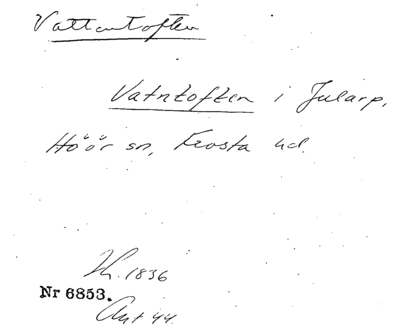 Vattentoften
Vatntoften i Jularp,
Höör sn, Frosta hd.
1836
Nr 6853.
44.